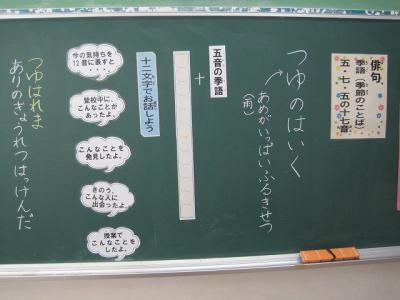 俳句
季語（季節のことば）
五・七・五の十七音
つゆのはいく
あめがいっぱいふるきせつ
（雨）
五音の季語
＋
十二文字でお話しよう
今の気持ちを
12音に表すと
・・・・
登校中に、
こんなことが
あったよ。
こんなことを
発見したよ。
きのう、
こんな人に
出会ったよ。
授業で
こんなことを
したよ。
つゆはれま
ありのぎょうれつはっけんだ